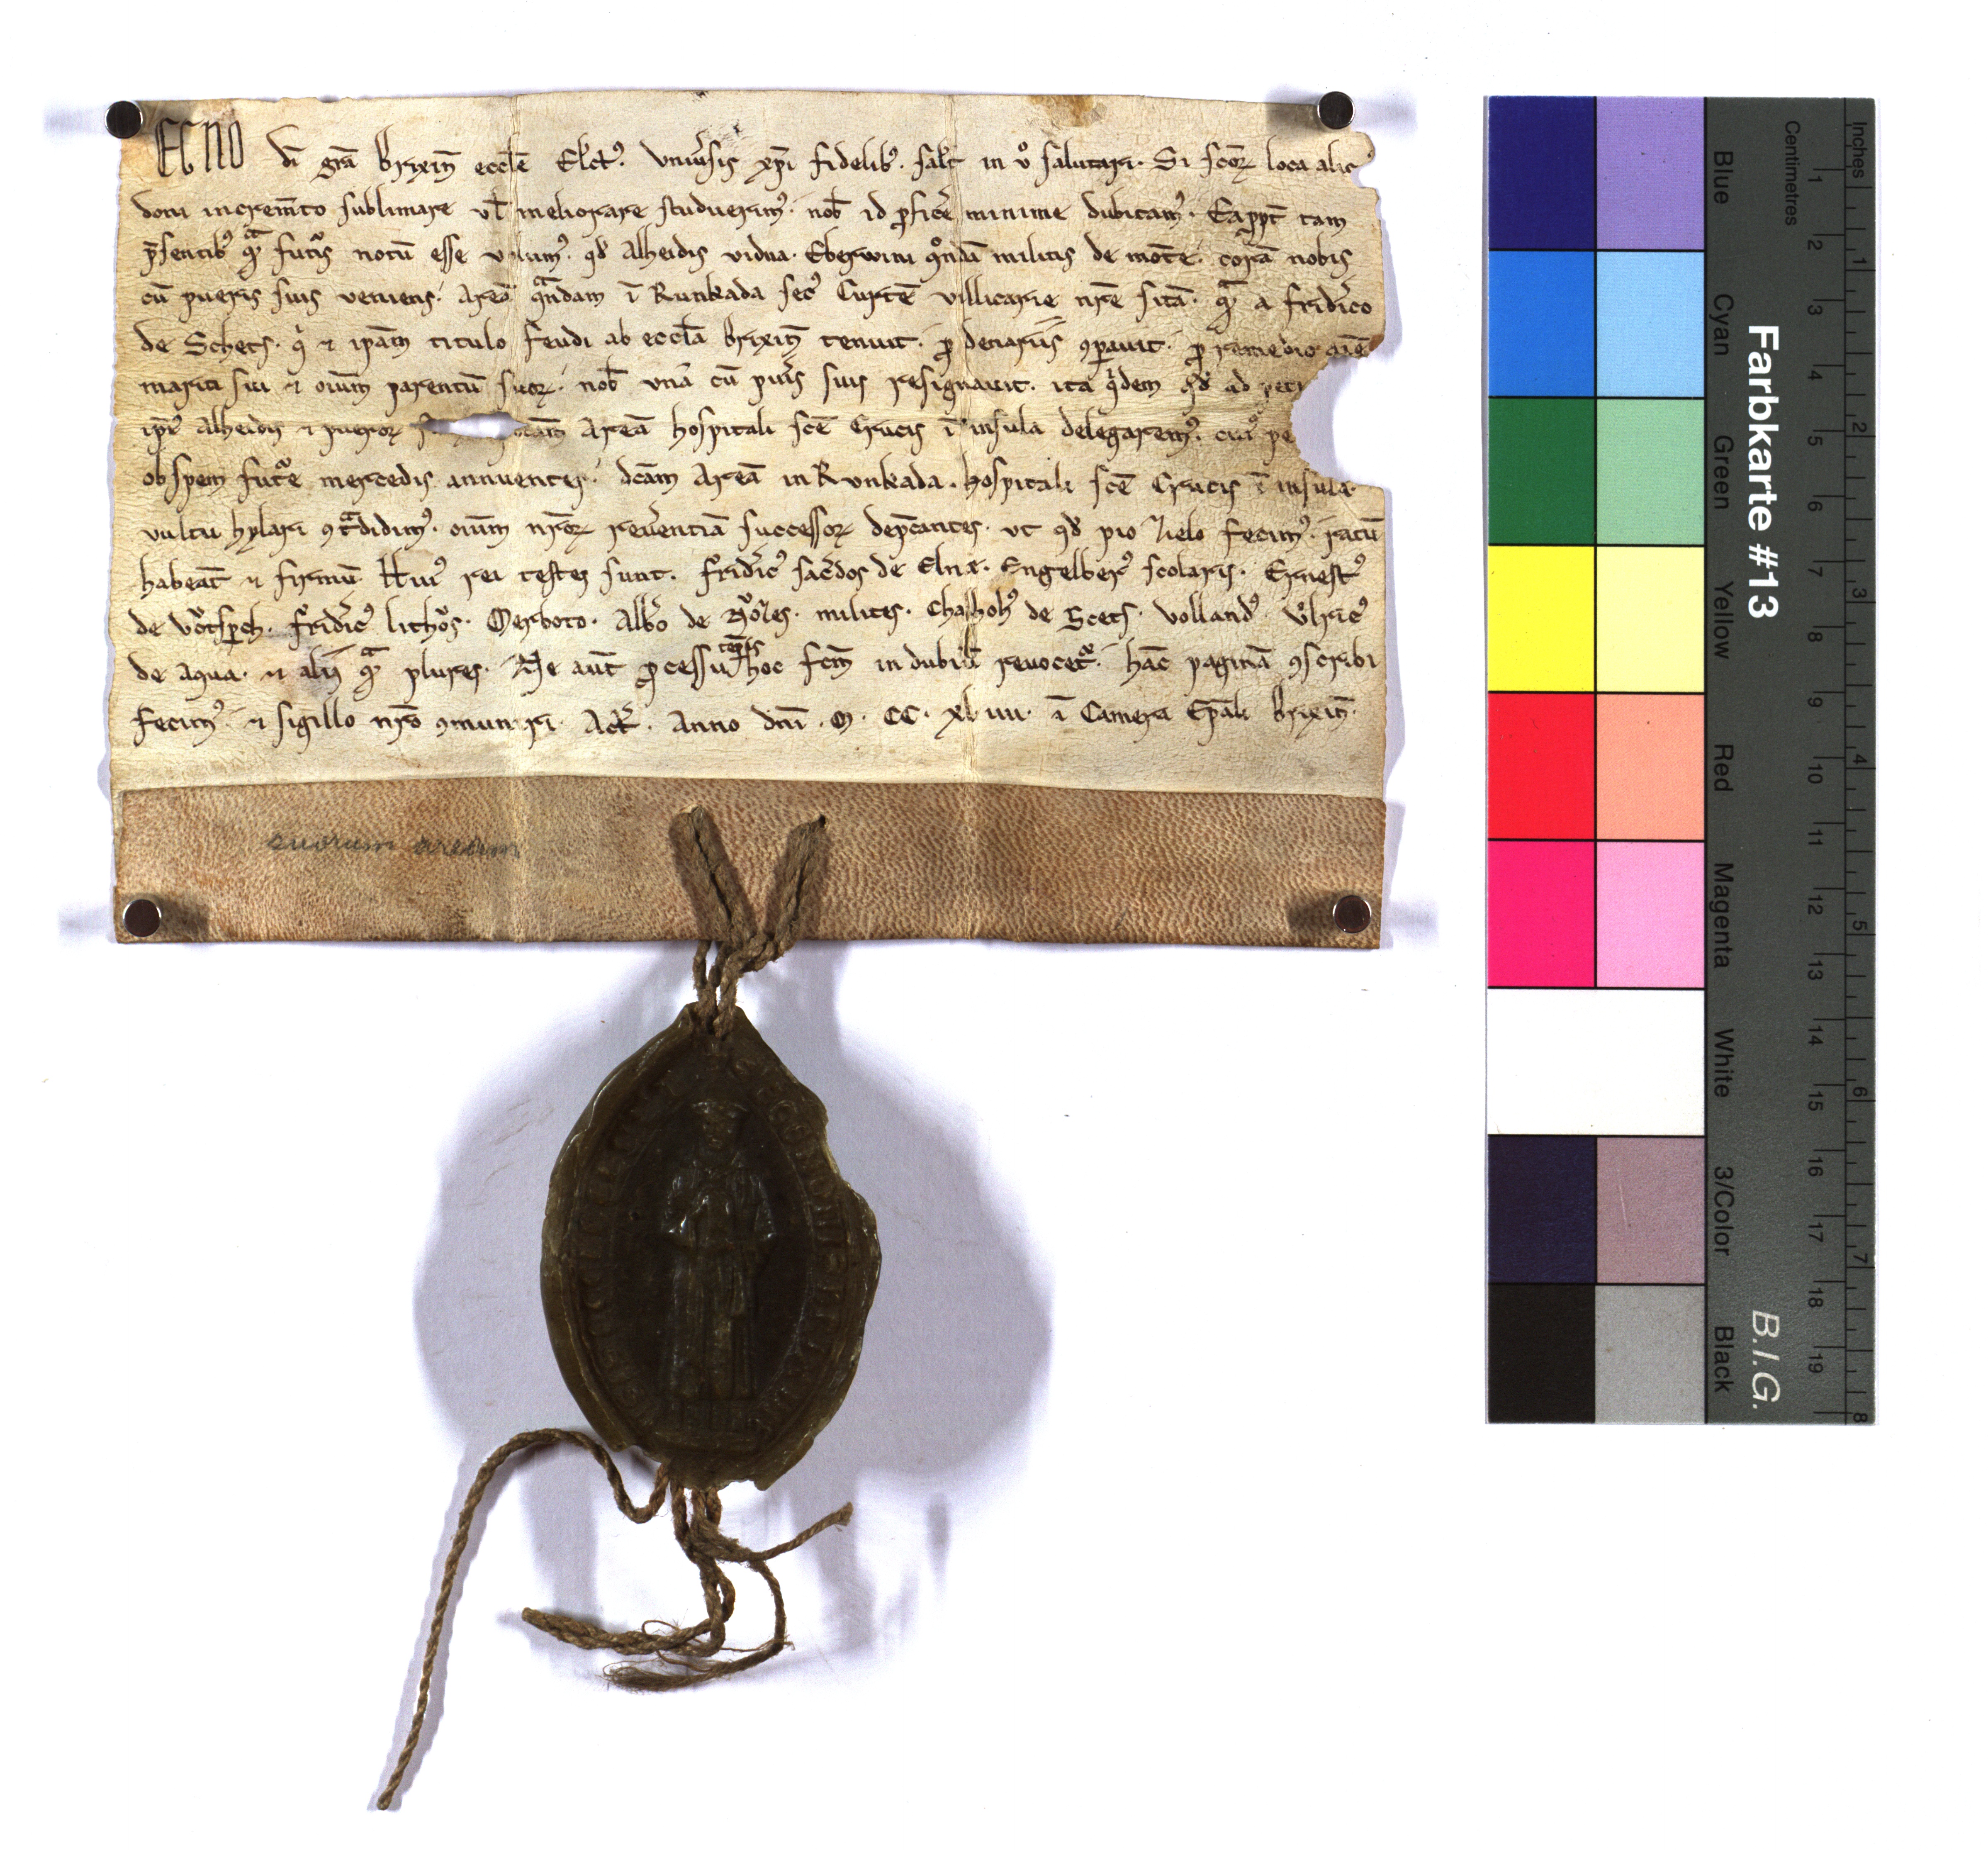 EGNO dī grā brixiñ eccłe Elct᷒. vniūsis xp̄i fidelib᷒. sal̄t in vͦ salutari. Si scōꝝ loca alic
doni incrēmto sublimare vł meliorare studuerim᷒. nob̄ id ꝓficẽ minime dubitam᷒. Eapp̱t tam
p̄sentib᷒ qͣm futᷓis notū esse volum᷒. qd̄ Alheidis vidua. Eberwini ꝯᷠdā militis de mōte. corā nobis
cū pueris suis veniens. Areā qͣndam ī Runkada sec᷒ Curtē villicarie nr̄e sitā. qͣm a friderico
de Schets. qͥ ⁊ ip̄am titulo feudi ab eccł̄a brixiñ tenuit. ꝓ denariis ꝯꝑauit. ꝓ remedio aīe
mariti sui ⁊ oīum parentū suoꝝ. nob̄ vnā cū puis suis resignauit. ita qͥdem qd̄ ad peti
ip̄ı᷒ Alheidis ⁊ pueroꝝ Areā hospitali scē Crucis ī insula delegarem᷒. cuı᷒ pe
ob spem futᷓe mercedis annuentes. dc̄am Areā in Runkada. hospitali scē Crucis ī insula.
vultu hylari ꝯtͣdidim᷒. oīum nr̄oꝝ reūentiā successoꝝ dep̄cantes. vt qd̄ pio zelo fecim᷒. ratū
habeāt ⁊ firmū. Hui᷒ rei testes sunt. fridic᷒ sacdos de Elnæ. Engelber᷒ scolaris. Ernest᷒
de vͦtspch. fridic᷒ lithos. Gerboto. Albo de Rodes. milites. Chalhoh᷒ de Scets. volland᷒. vͦlric᷒
de aqua. ⁊ alij qͣm plures. Ne aut̄ ꝓcessu tēpis hoc fc̄m in dubiū reuocet᷑. hāc paginā ꝯscribi
fecim᷒. ⁊ sigillo nr̄o ꝯmuniri. Act̄. Anno dn̄i. M. CC. xl iiii. ī Camera Ep̄ali brixiñ.
suorum aream
Farbkarte #13
B.I.G.
Blue
Cyan
Green
Yellow
Red
Magenta
White
3/Color
Black
Centimetres
1 2 3 4 5 6 7 8 9 10 11 12 13 14 15 16 17 18 19
Inches
1 2 3 4 5 6 7 8